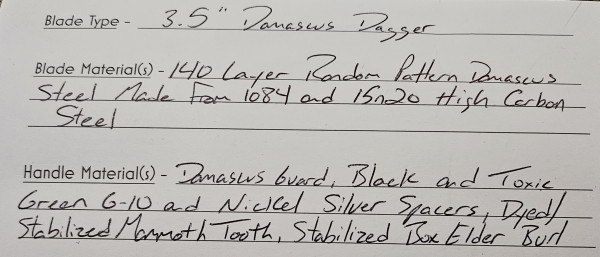 Blade Type - 3.5" Damascus Dagger
Blade Material(s) - 140 Layer Random Pattern Damascus
Steel Made From 1084 and 15n20 High Carbon
Steel
Handle Material(s) - Damascus Guard, Black and Toxic
Green G-10 and Nickel Silver Spacers, Dyed/
Stabilized Mammoth Tooth, Stabilized Box Elder Burl